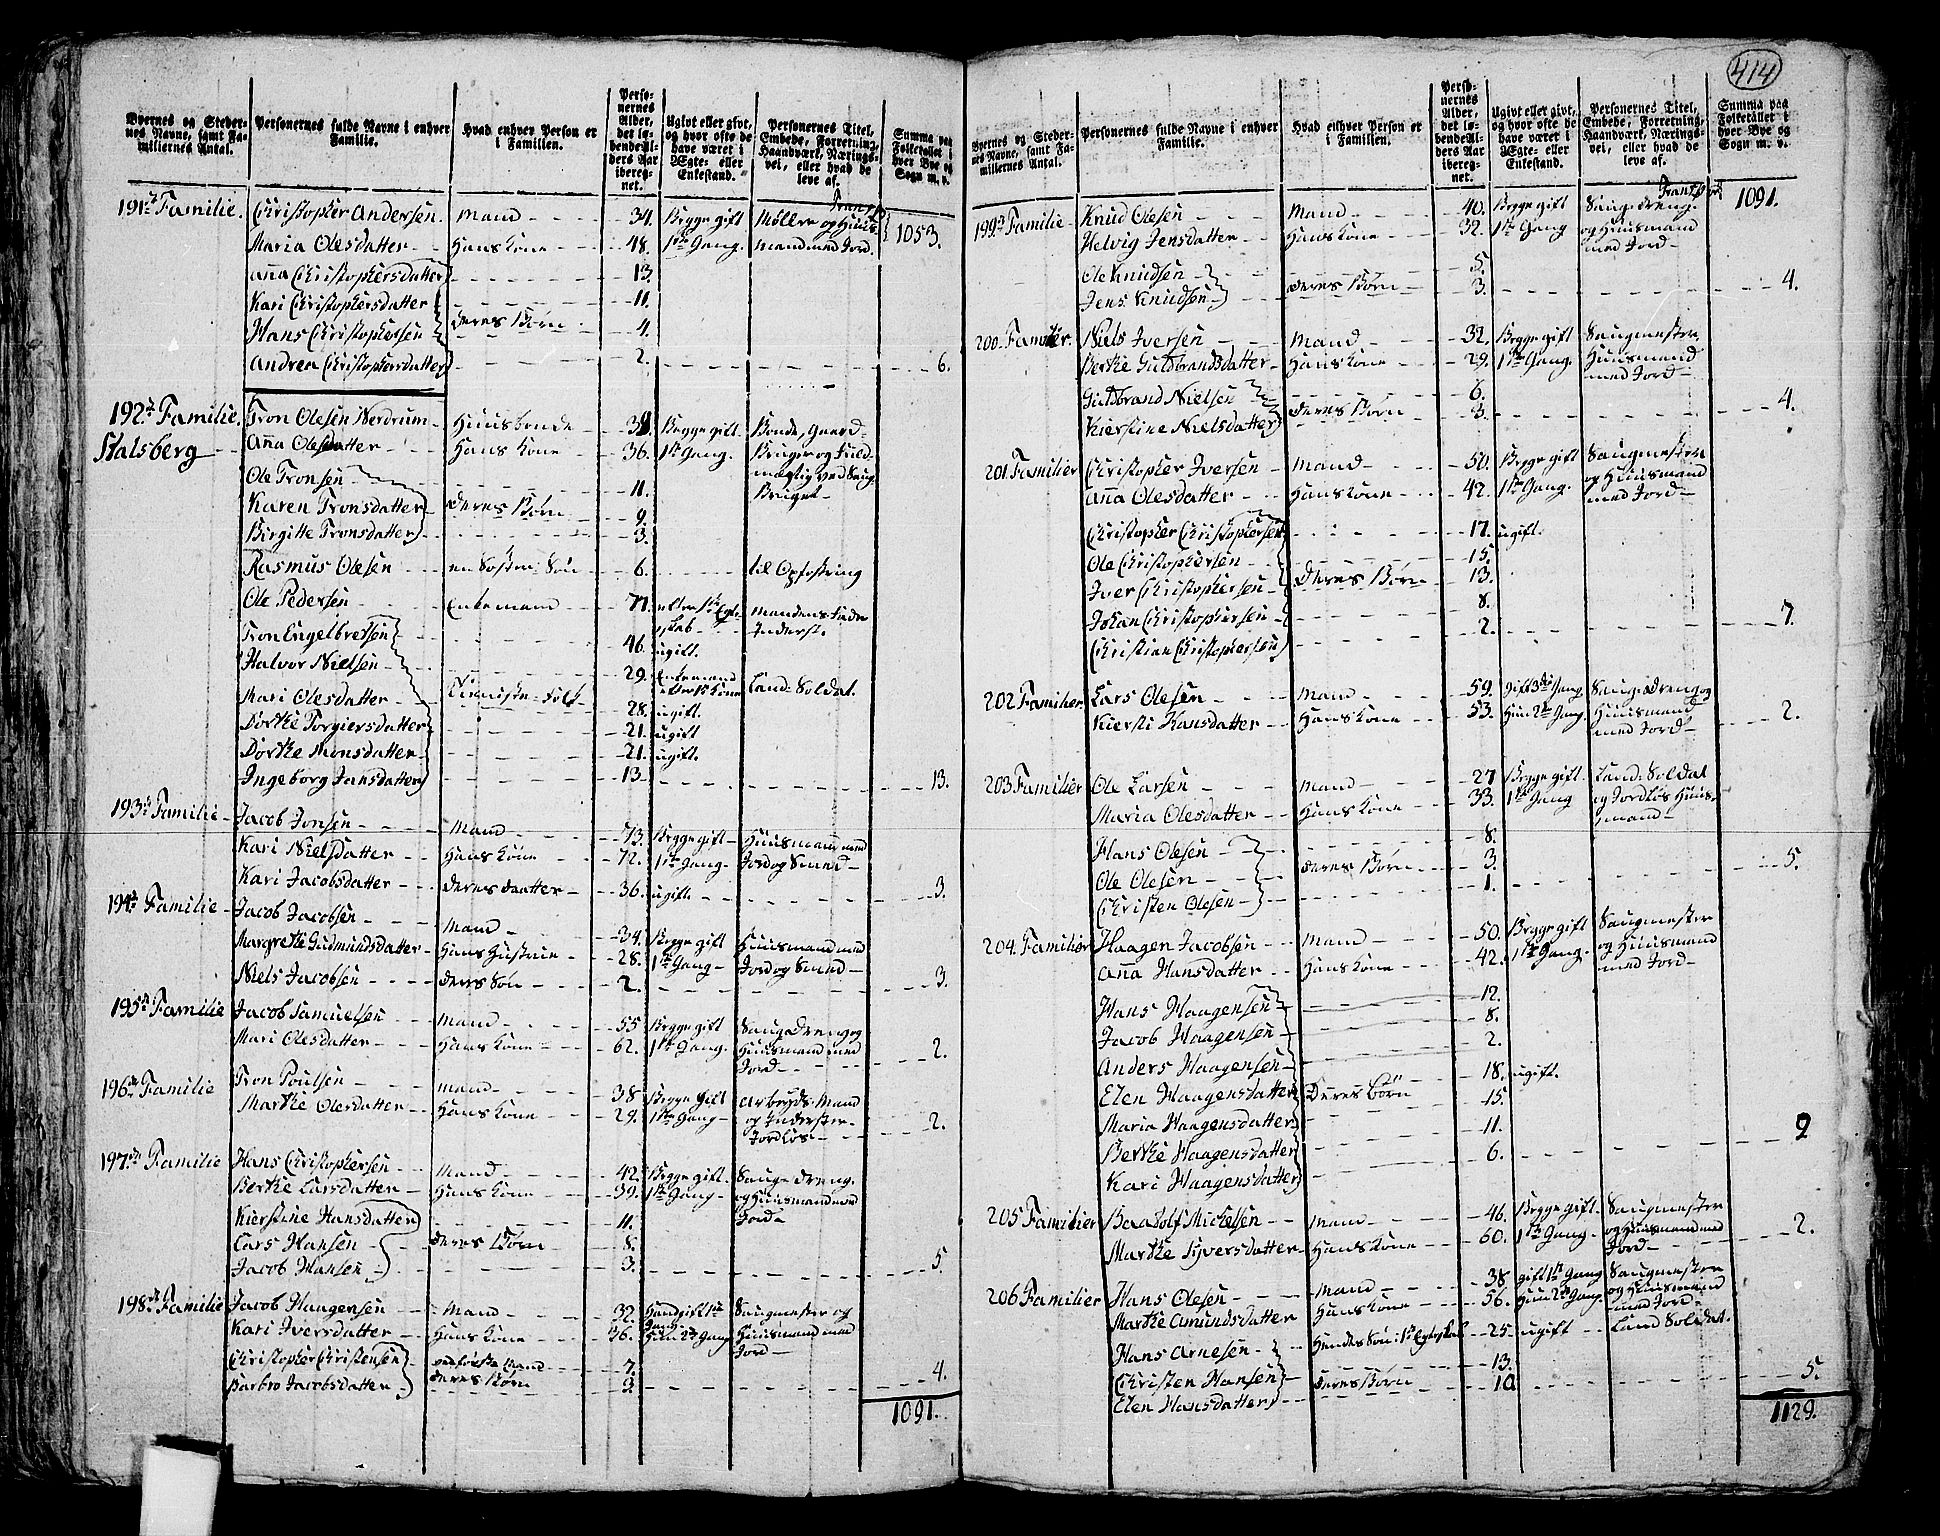 414
Byernes og Stedernes Navne, samt Familiernes Antal.
Personernes fulde Navne i enhver Familie.
Hvad enhver Person er i Familien.
Personernes Alder, det løbende Alders Aar iberegnet.
Ugivt eller givt, og hvor ofte de have været i Ægte- eller Enkestand.
Personernes Titel, Embede, Forretning, Haandværk, Nærings-vei, eller hvad de leve af.
Summa paa Folketallet i hver Bye og Sogn m. v.
Transp.
191de Familie. Christopher Andersen. Mand 34. Begge gift Møller og Huus- 1053.
Maria Olesdatter Hans Kone 48. 1ste Gang. mand med Jord.
Anna Christophersdatter 13.
Kari Christophersdatter 11.
Hans Christophersen Deres Børn 4.
Andrea Christophersdatter 2. 6.
192de Familie. Tron Olesen Nordrum Huusbonde 38. Begge gift Bonde, Gaard-
Stalsberg Anna Olesdatter Hans Kone 36. 1ste Gang. Bruger og Fuld-
Ole Tronsen 11. mægtig ved Saug
Karen Tronsdatter Deres Børn 9. Bruget
Birgitte Tronsdatter 3.
Rasmus Olesen en Søster Søn 6. til Opfostring
Ole Pedersen Enkemand 71. efter 1ste Egte- mandens Fader
skab Inderst.
Tron Engelbretsen 46. ugift.
Halvor Nielsen 29. Enkemand Land-Soldat.
Mari Olesdatter Tienniste-Folk 28. ugift.
Dorthe Torgiersdatter 21. ugift
Dorthe Monsdatter 21. ugift.
Ingeborg Jansdatter 13 13.
193de Familie Jacob Jonsen Mand 73. Begge gift Huusmand med
Kari Nielsdatter Hans Kone 72. 1ste Gang. Jord og Smed
Kari Jacobsdatter Deres Datter 36. ugift 3.
194de Familie Jacob Jacobsen Mand 34. Begge gift Huusmand med
Margrethe Gudmundsdatter Hans Hustrue 28. 1ste Gang Jord og Smed
Niels Jacobsen Deres Søn 2. 3.
195de Familie Jacob Samuelsen Mand 55 Begge gift Saugedreng og
Mari Olesdatter Hans Kone 62. 1ste Gang. Huusmand med
Jord 2.
196de Familie Tron Poulsen Mand 38 Begge Gift Arbeyds-Mand
Marthe Olesdatter Hans Kone 29. 1ste Gang og Inderster
Jordløs 2.
197de Familie Hans Christophersen Mand 42. Begge gift. Sauge Dreng.
Berthe Larsdatter Hans Kone 39. 1ste Gang og Huusmand med
Kierstine Hansdatter 11. Jord
Lars Hansen Deres Børn 8.
Jacob Hansen 3. 5
198de Familie Jacob Haagensen Mand 32. Hand gift 1ste Saugmester og
Kari Iversdatter Hans Kone 36. Gang. Hun 2den Gang Huusmand med
Christopher Christensen ved første Mand 7. Jord
Barbro Jacobsdatter Deres Børn 3. 4.
1091.
Byernes og Stedernes Navne, samt Familiernes Antal.
Personernes fulde Navne i enhver Familie.
Hvad enhver Person er i Familien.
Personernes Alder, det løbende Alders Aar iberegnet.
Ugivt eller givt, og hvor ofte de have været i Ægte- eller Enkestand.
Personernes Titel, Embede, Forretning, Haandværk, Nærings-vei, eller hvad de leve af.
Summa paa Folketallet i hver Bye og Sogn m. v.
Transport
199de Familie Knud Olesen Mand 40. Begge gift Saugedreng. 1091.
Helvig Jensdatter Hans Kone 32. 1ste Gang og Huusmand
Ole Knudsen 5. med Jord
Jens Knudsen Deres Børn 3. 4.
200. Familier Niels Iversen Mand 32. Begge gift Saugmester
Berthe Guldbrandsdatter Hans Kone 29. 1ste Gang. Huusmand
Guldbrand Nielsen 6. med Jord
Kierstine Nielsdatter Deres Børn 3. 4.
201. Familier Christopher Iversen Mand 50. Begge gift Saugmester
Anna Olesdatter Hans Kone 42. 1ste Gang. og Huusmand
med Jord
Christopher Christophersen 17. ugift.
Ole Christophersen 15.
Iver Christophersen Deres Børn 13.
Johan Christophersen 8.
Christian Christophersen 2. 7.
202 Familier Lars Olesen Mand 59. gift 3die Gang Saugedreng og
Kiersti Hansdatter Hans Kone 53. Hun 2den Gang Huusmand 2.
med Jord
203 Familier Ole Larsen Mand 27 Begge gift. Land-Soldat
Maria Olesdatter Hans Kone 33. 1ste Gang og Jordløs Huus-
mand
Hans Olesen 8.
Ole Olesen Deres Børn 3.
Christen Olesen 1. 5.
204. Familier Haagen Jacobsen Mand 50. Begge gift Saugmester
Anna Hansdatter Hans Kone 42. 1ste Gang. og Huusmand
med Jord
Hans Haagensen 12.
Jacob Haagensen 8.
Anders Haagensen 2.
Elen Haagensdatter Deres Börn 18. ugift.
Maria Haagensdatter 15.
Berthe Haagensdatter 11.
Kari Haagensdatter 6. 9
205 Familier Baadolf Michelsen Mand 46. Begge gift. Saugmester
Marthe Syversdatter Hans Kone 60. 1ste Gang og Huusmand med 2.
Jord
206 Familier Hans Olesen Mand 38 gift 1ste Gang Saugmester
Marthe Amundsdatter Hans Kone 56. Hun 2den Gang. og Huusmand
med Jord
Hans Arnesen Hendes Søn i 1ste Egteskab 25 ugift Land Soldat.
Christen Hansen 13.
Elen Hansdatter Deres Børn 10 5.
1129.